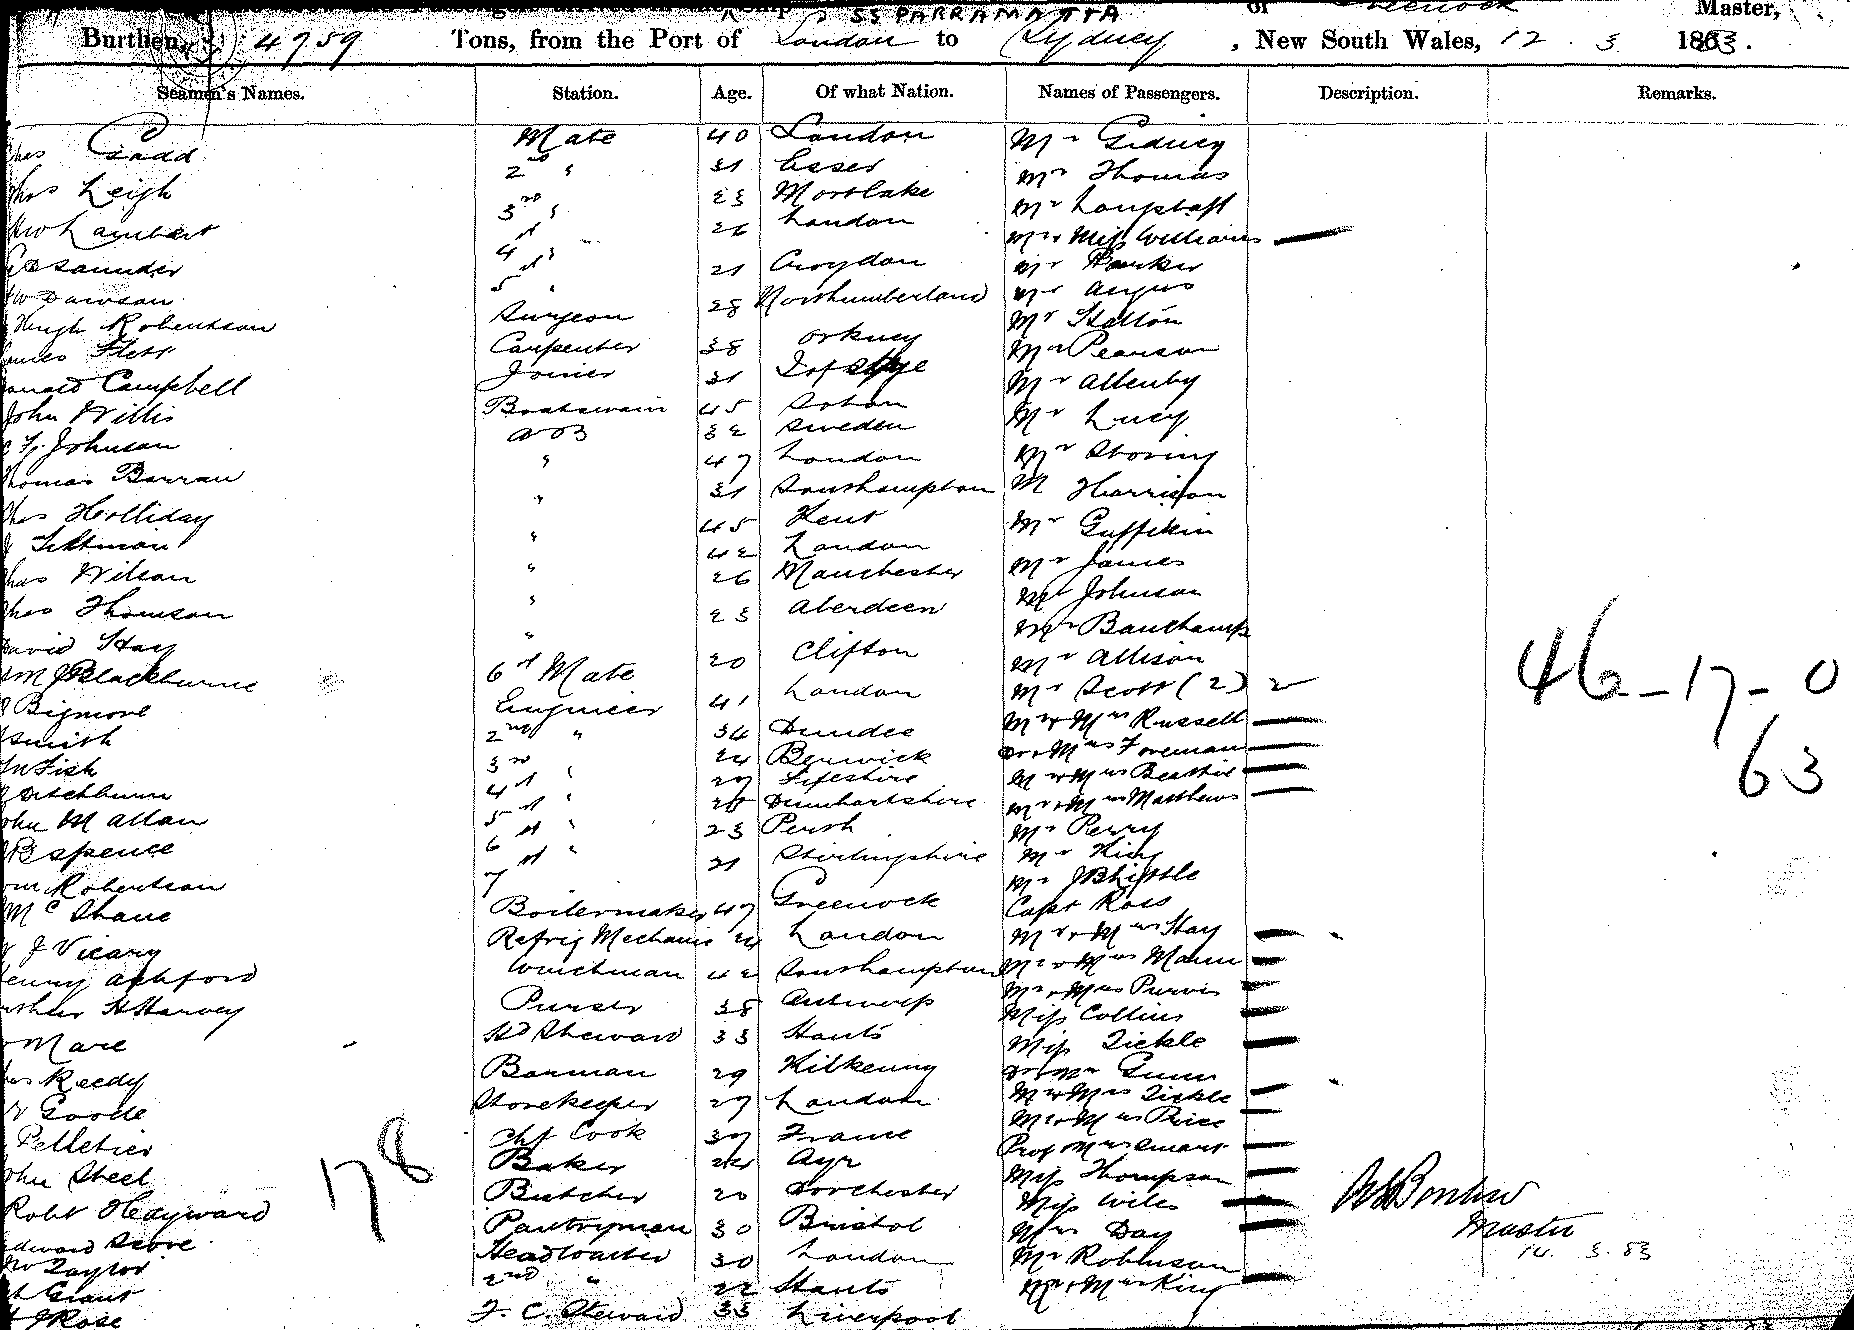 SS PARRAMATTA of Greenock Master,
Burthen, 4759 Tons, from the Port of London to Sydney, New South Wales, 12 . 3 1883.
Seamen's Names. Station. Age. Of what Nation. Names of Passengers. Description. Remarks.
Gadd Mate 40 London Mr Gidney
Leigh 2nd " 31 Essex Mr Thomas
Lambert 3rd " 23 Mortlake Mr Longstaff
Saunder 4th " 26 London Mr & Miss Williams
Dawson 5th " 21 Croydon Mr Barker
Hugh Robertson Surgeon 28 Northumberland Mr Angus
James Flett Carpenter 38 Orkney Mr Statton
Donald Campbell Joiner 31 I of Skye Mr Pearson
John Willis Boatswain 45 Mr Allenby
Johnson AB 32 Sweden Mr Lucy
Thomas Barran " 47 London Mr Storing
Holliday " 31 Southampton M Harrison
Tiltman " 45 Kent Mr Guffikin
Wilson " 42 London Mr James
Thomson " 26 Manchester Mr Johnson
David Hay " 23 Aberdeen Mr Bauchamp
Blackburne 6th Mate 20 Clifton Mr Allison
Bigmore Engineer 41 London Mr Scott (2)
Smith 2nd " 34 Dundee Mr & Mrs Russell
Fish 3rd " 24 Berwick Dr & Mrs Foreman
Ditchburn 4th " 27 Fifeshire Mr & Mrs Beattie
John M Allan 5th " 28 Dumbartshire Mr & Mrs Matthews
Spence 6th " 23 Perth Mr Perry
Robertson 7th " 21 Stirlingshire Mr King
McShane Boilermaker 47 Greenock Mr J B Hipple
J Vicary Refrig Mechanic 24 London Capt Ross
Henry Ashford Winchman 42 Southampton Mr & Mrs Hay
Arthur H Harvey Purser 38 Antwerp Mr & Mrs Mann
Mare Hd Steward 33 Hants Mr & Mrs Purvis
Reedy Barman 29 Kilkenny Miss Collins
Goode Storekeeper 27 London Miss Tickle
Pelletier Chf Cook 37 France Gunn
John Steel Baker 24 Ayr Mr & Mrs Tickle
Robt Heayward Butcher 20 Dorchester Mr & Mrs Price
Edward Scove Pantryman 30 Bristol Prof & Mrs Smart
Taylor Headwaiter 30 London Miss Thompson
Grant 2nd " 22 Hants Miss Wiles
Rose F. C. Steward 33 Liverpool Mrs Day
Mr Robinson
Mr & Mrs King
178
46-17-0
63
Master
14. 3. 83